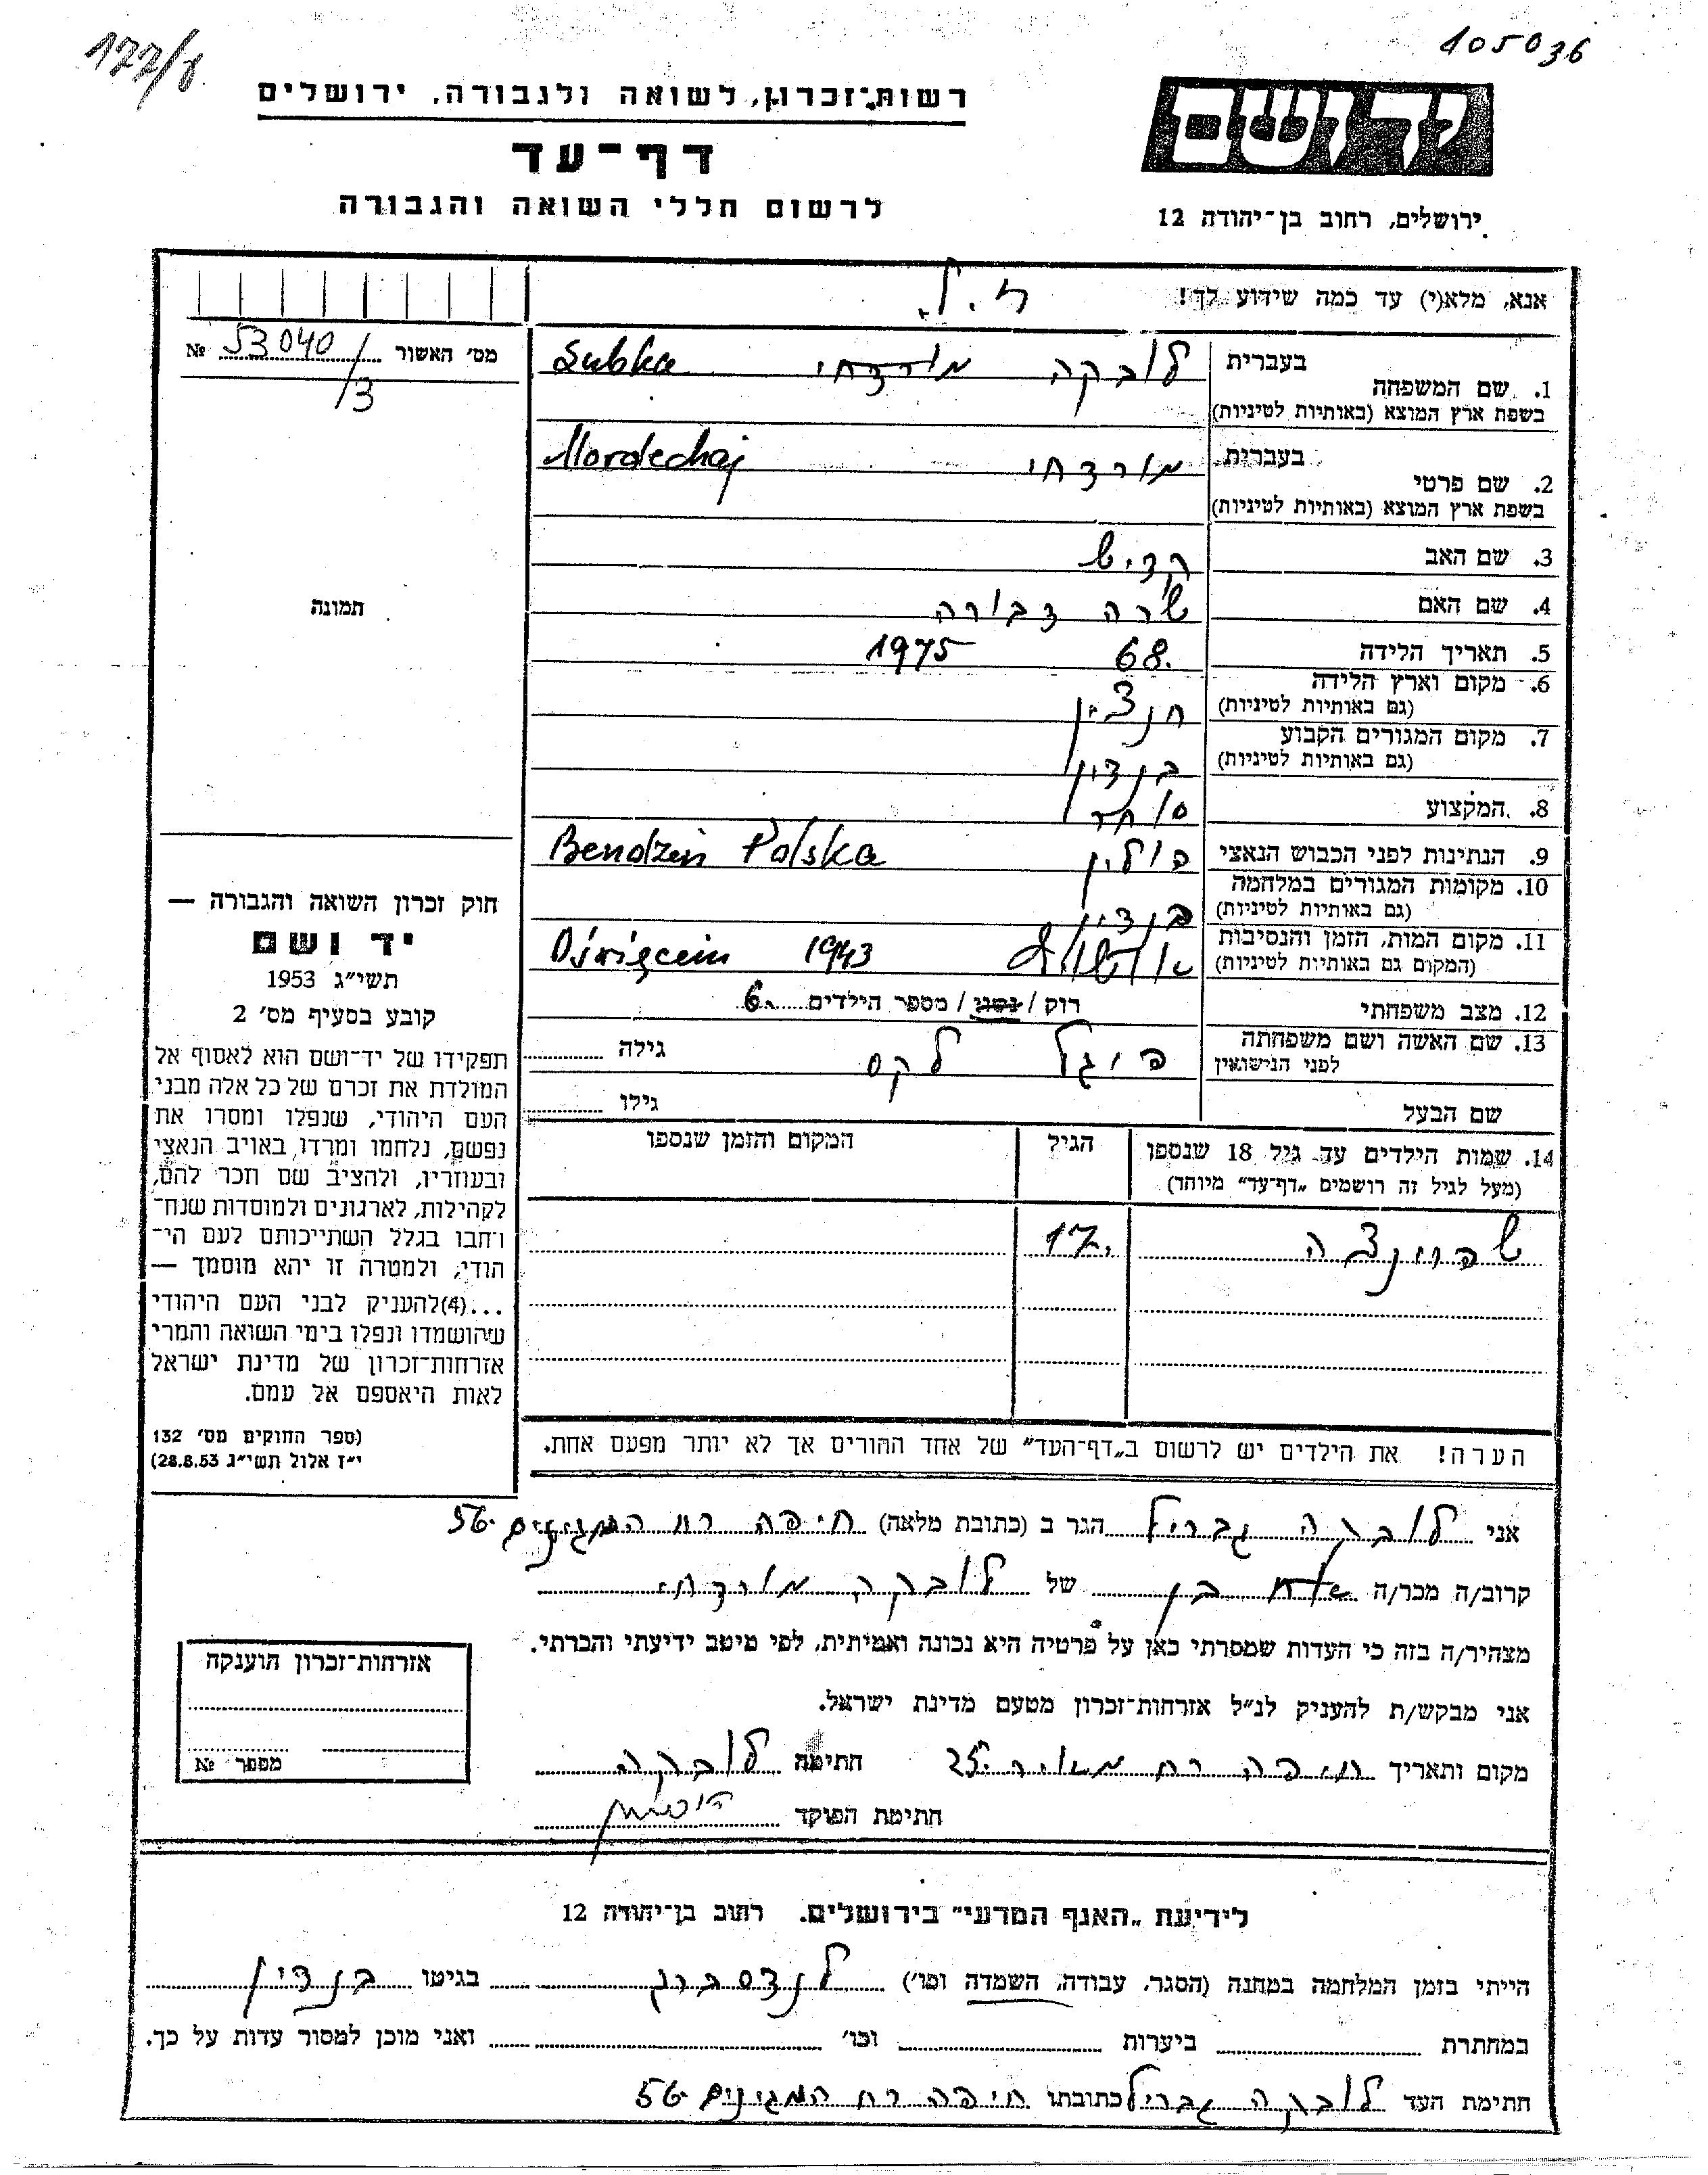 177/ע
105036
רשות־זכרון, לשואה ולגבורה, ירושלים
יד ושם
דף־עד
לרשום חללי השואה והגבורה
ירושלים, רחוב בן־יהודה 12
אנא, מלא(י) עד כמה שידוע לך!
מס׳ האשור 53040/3 №
1. שם המשפחה
בעברית לובקה מורדכי Lubka
בשפת ארץ המוצא (באותיות לטיניות)
2. שם פרטי
בעברית מורדכי Mordechaj
בשפת ארץ המוצא (באותיות לטיניות)
3. שם האב קדיש
4. שם האם שרה דבורה
5. תאריך הלידה 68. 1975
6. מקום וארץ הלידה
(גם באותיות לטיניות)
7. מקום המגורים הקבוע
(גם באותיות לטיניות) בנדין
8. המקצוע סוחר
9. הנתינות לפני הכבוש הנאצי פולין Bendzin Polska
10. מקומות המגורים במלחמה
(גם באותיות לטיניות) בנדין
11. מקום המות, הזמן והנסיבות
(המקום גם באותיות לטיניות) אושוויץ 1943 Oświęcim
12. מצב משפחתי רוק / נשוי / מספר הילדים 6.
13. שם האשה ושם משפחתה
לפני הנישואין פייגל לקס גילה
שם הבעל גילו
14. שמות הילדים עד גיל 18 שנספו
(מעל לגיל זה רושמים „דף־עד״ מיוחד)
הגיל
המקום והזמן שנספו
שפרינצה 17.
הערה! את הילדים יש לרשום ב„דף־העד״ של אחד ההורים אך לא יותר מפעם אחת.
תמונה
חוק זכרון השואה והגבורה —
יד ושם
תשי״ג 1953
קובע בסעיף מס׳ 2
תפקידו של יד־ושם הוא לאסוף אל
המולדת את זכרם של כל אלה מבני
העם היהודי, שנפלו ומסרו את
נפשם, נלחמו ומרדו באויב הנאצי
ובעוזריו, ולהציב שם וזכר להם,
לקהילות, לארגונים ולמוסדות שנח־
רבו בגלל השתייכותם לעם הי־
הודי, ולמטרה זו יהא מוסמך —
...(4)להעניק לבני העם היהודי
שהושמדו ונפלו בימי השואה והמרי
אזרחות־זכרון של מדינת ישראל
לאות היאספם אל עמם.
(ספר החוקים מס׳ 132
י״ז אלול תשי״ג 28.8.53)
אני לובקה גבריל הגר ב (כתובת מלאה) חיפה רח המגינים 56
קרוב/ה מכר/ה אח בן של לובקה מורדכי
מצהיר/ה בזה כי העדות שמסרתי כאן על פרטיה היא נכונה ואמיתית, לפי מיטב ידיעתי והכרתי.
אני מבקש/ת להעניק לנ״ל אזרחות־זכרון מטעם מדינת ישראל.
מקום ותאריך חיפה רח מאיר 25 חתימה לובקה
חתימת הפוקד
אזרחות־זכרון הוענקה
מספר №
לידיעת „האגף המדעי״ בירושלים. רחוב בן־יהודה 12
הייתי בזמן המלחמה במחנה (הסגר, עבודה, השמדה וכו׳) לנדסברג בגיטו בנדין
במחתרת ביערות וכו׳ ואני מוכן למסור עדות על כך.
חתימת העד לובקה גבריל כתובתו חיפה רח המגינים 56